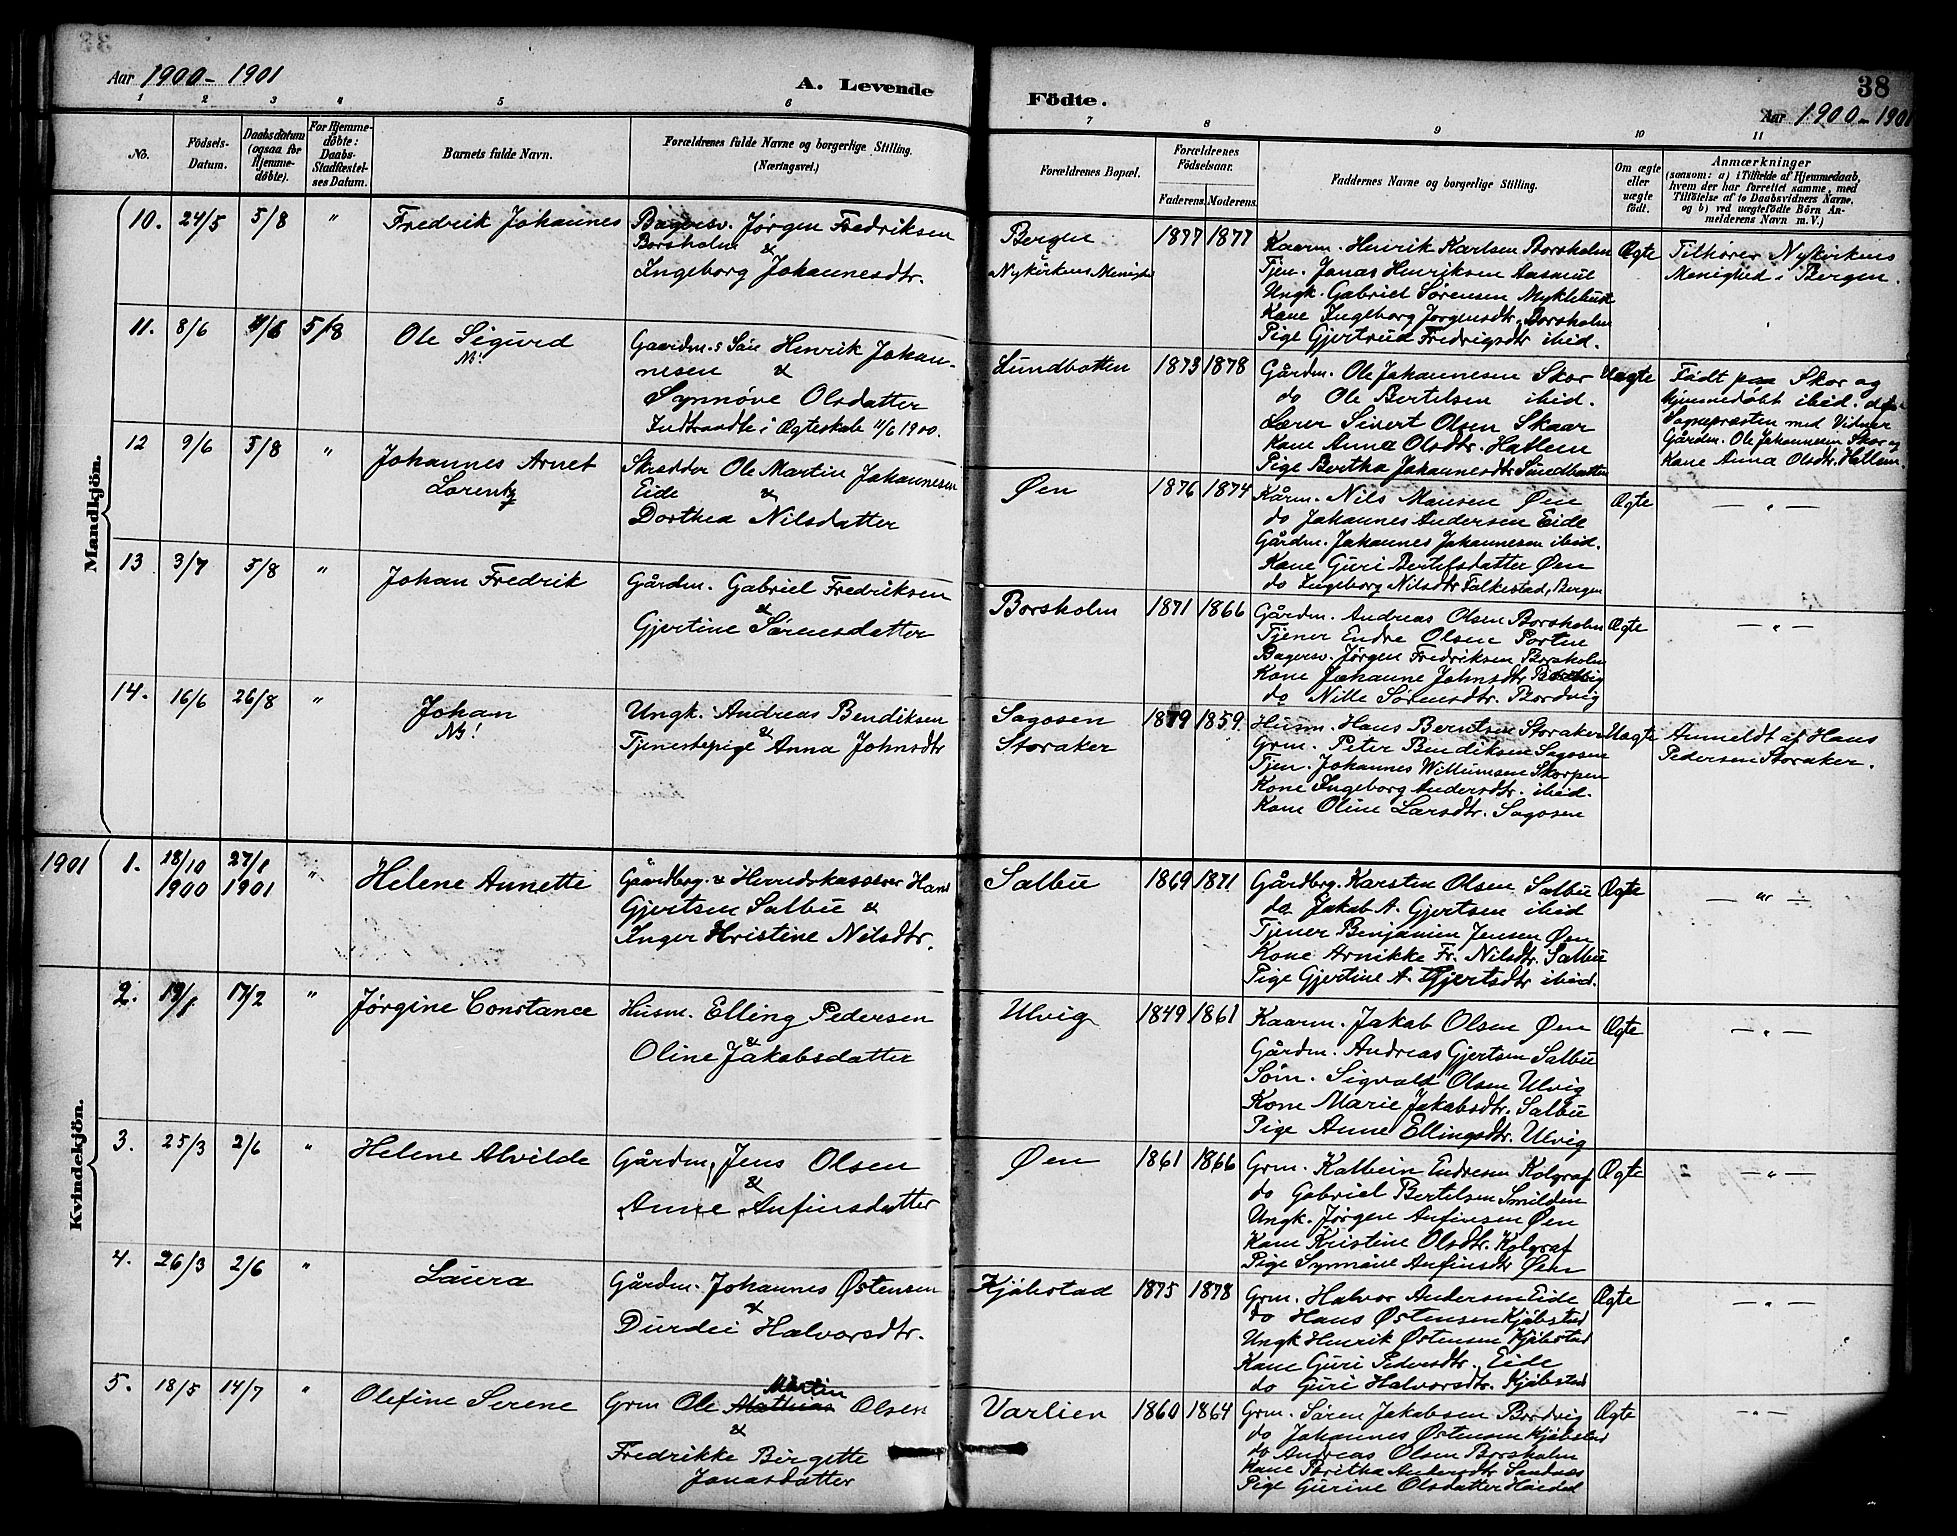 38
Aar 1900-1901
A. Levende Födte.
Aar 1900-1901
1 2 3 4 5 6 7 8 9 10 11
No.
Födsels-Datum.
Daabsdatum (ogsaa for Hjemmedöbte).
For Hjemmedöbte: Daabs-Stadfæstelses Datum.
Barnets fulde Navn.
Forældrenes fulde Navne og borgerlige Stilling.
(Næringsvei.)
Forældrenes Bopæl.
Forældrenes Födselsaar.
Faderens. Moderens.
Faddernes Navne og borgerlige Stilling.
Om ægte eller uægte födt.
Anmærkninger
(saasom: a) i Tilfælde af Hjemmedaab, hvem der har forrettet samme, med Tilföielse af to Daabsvidners Navne, og b) ved uægtefödte Börn Anmelderens Navn m. V.)
Mandkjön.
10. 24/5 5/8 " Fredrik Johannes
Bagersv. Jørgen Fredriksen
Borsholm &
Ingeborg Johannesdtr.
Bergen
Nykirkens Menighd
1877 1877
Kaarm. Henrik Karlsen Borsholm
Tjen. Jonas Henriksen Aasnue
Ungk. Gabriel Sørensen Myklebust
Kone Ingeborg Jørgensdtr. Borsholm
Pige Gjertrud Fredrigsdtr ibid.
Ægte
Tilhører Nykirkens
Menighed i Bergen.
11. 8/6 11/6 5/8 Ole Sigurd
N!
Gaardm.s Søn Henrik Johan-
nesen &
Synnøve Olsdatter
Indtraadte i Ægteskab 11/6 1900.
Lundbotten
1873 1878
Gårdm. Ole Johannesen Skor
do Ole Bertelsen ibid.
Lærer Sivert Olsen Skaar
Kone Anna Olsdtr. Hatlem
Pige Bertha Johannesdtr Lundbotten
Uægte
Födt paa Skor og
hjemmedøbt ibid. af
Sognepræsten med Vidner
Gårdm. Ole Johannesen Skor og
Kone Anna Olsdtr. Hatlem.
12 9/6 5/8 " Johannes Arnet
Lorentz
Skrædder Ole Martin Johannesen
Eide &
Dorthea Nilsdatter
Øen
1876 1874
Kårm. Nils Monsen Øen
do Johannes Andersen Eide
Gårdm. Johannes Johannesen ibid.
Kone Guri Bertelsdatter Øen
do Ingeborg Nilsdtr Falkestad, Bergen
Ægte
— " —
13 3/7 5/8 " Johan Fredrik
Gårdm. Gabriel Fredriksen
&
Gjertine Sørensdatter
Borsholm
1871 1866
Gårdm. Andreas Olsen Borsholm
Tjener Endre Olsen Portne
Bagersv. Jørgen Fredriksen Borsholm
Kone Johanne Johnsdtr. Bordvig
do Nille Sørensdtr. Bordvig
Ægte
— " —
14. 16/6 26/8 " Johan
N!
Ungk. Andreas Bendiksen
&
Tjenestepige Anna Johnsdtr
Sagosen
Storaker
1879 1859.
Husm. Hans Berntsen Storaker
Grm. Peter Bendiksen Sagosen
Tjen. Johannes Willumsen Skorpen
Kone Ingeborg Andersdtr. ibid.
Kone Oline Larsdtr. Sagosen
Uægte
Anmeldt af Hans
Pedersen Storaker.
1901
Kvindekjön.
1. 18/10 1900 27/1 1901 " Helene Annette
Gaardbrg. & Herredskasserer Hans
Gjertsen Salbu &
Inger Kristine Nilsdtr.
Salbu
1869 1871
Gårdbrg. Karsten Olsen Salbu
do Jakob A. Gjertsen ibid
Tjener Benjamin Jensen Øen
Kone Arnikke Fr. Nilsdtr. Salbu
Pige Gjertine A. Gjertsdtr ibid.
Ægte
— " —
2. 19/1 17/2 " Jørgine Constance
Husm. Elling Pedersen
&
Oline Jakobsdatter
Ulvig
1849 1861
Kaarm. Jakob Olsen Øen
Gårdm. Andreas Gjertsen Salbu
Søm. Sigvald Olsen Ulvig
Kone Marie Jakobsdtr. Salbu
Pige Anne Ellingsdtr. Ulvig
Ægte
— " —
3. 25/3 2/6 " Helene Alvilde
Gårdm. Jens Olsen
&
Anne Anfinsdatter
Øen
1861 1866
Grm. Kolbein Endresen Kolgraf
do Gabriel Bertelsen Smilden
Ungk. Jørgen Anfinsen Øen
Kone Kristine Olsdtr. Kolgraf
Pige Synnøve Anfinsdtr Øen
Ægte
— " —
4. 26/3 2/6 " Laura
Gårdm. Johannes Østensen
&
Durdei Halvorsdtr.
Kjøbstad
1875 1878
Grm. Halvor Andersen Eide
do Hans Østensen Kjøbstad
Ungk Henrik Østensen Kjøbstad
Kone Guri Pedersdtr. Eide
do Guri Halvorsdtr. Kjøbstad
Ægte
— " —
5. 18/5 14/7 " Olefine Serene
Martin
Grm Ole Mathias Olsen
&
Fredrikke Birgette
Jonasdatter
Varlien
1860 1864
Grm. Søren Jakobsen Bordvig
do Johannes Østensen Kjøbstad
do Andreas Olsen Borsholm
Kone Britha Andersdtr Sandnes
Pige Gurine Olsdatter
Ægte
— " —